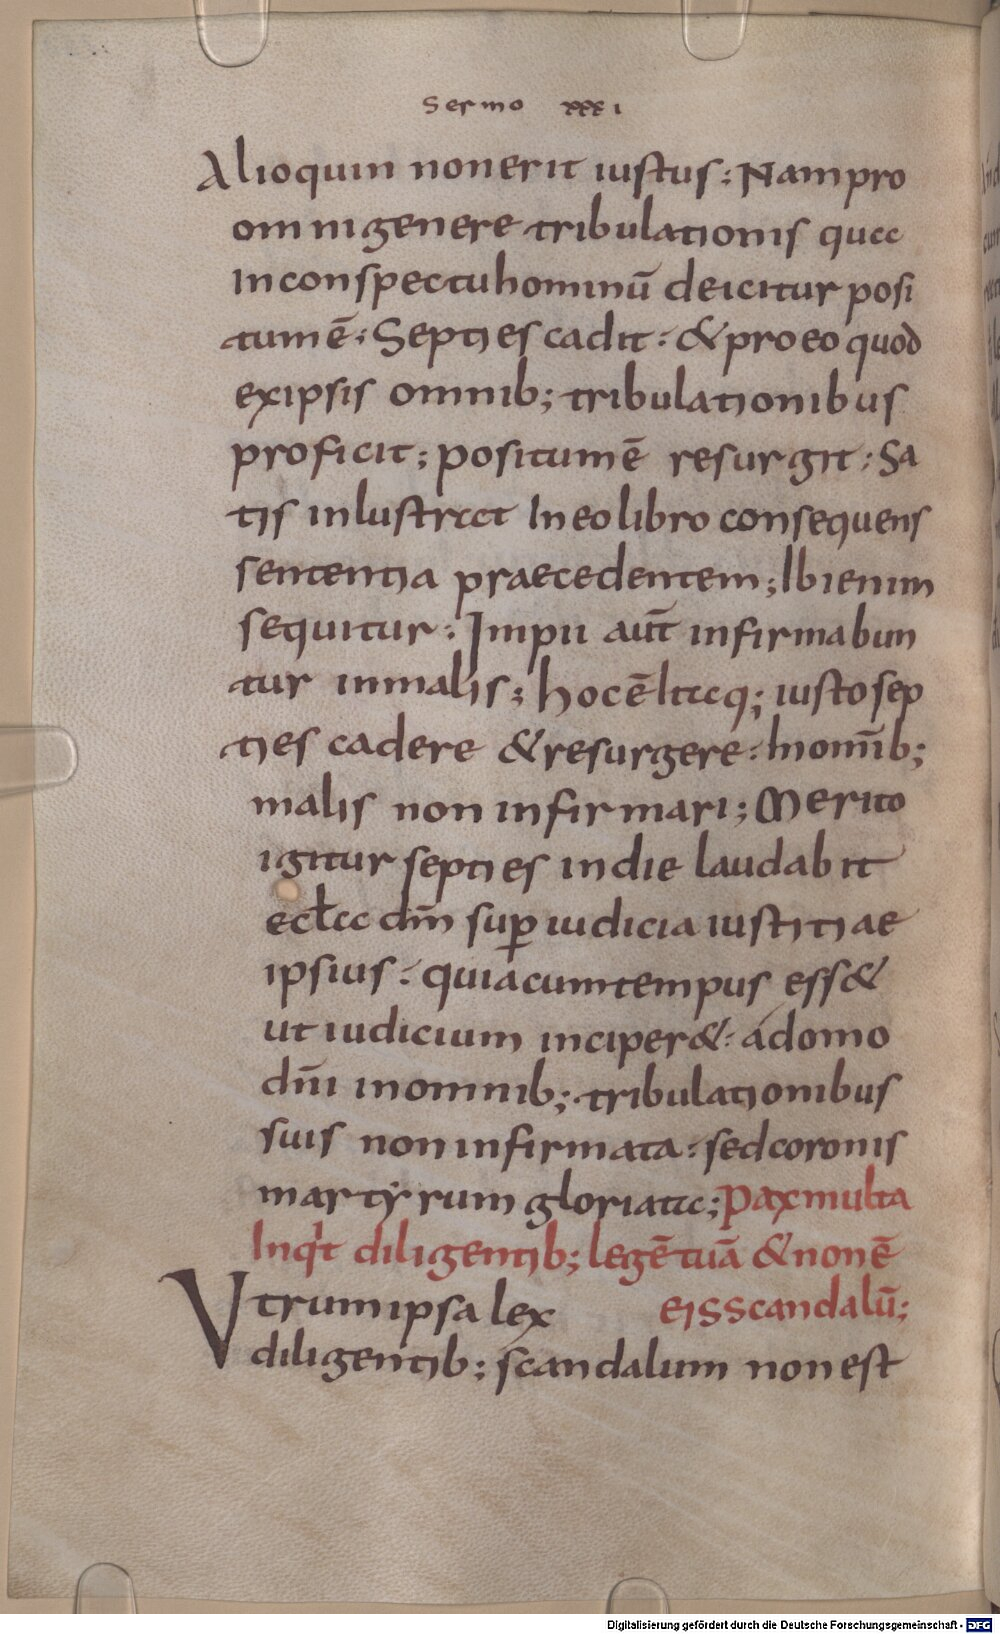 Sermo xxxi
Alioquin non erit iustus: Nam pro
omni genere tribulationis quae
In conspectu hominū deicitur posi
tum ē: Septies cadit: & pro eo quod
ex ipsis omnib; tribulationibus
proficit; positum ē resurgit: Sa
tis inlustrat In eo libro consequens
sententia praecedentem; Ibi enim
sequitur: Impii aūt infirmabun
tur in malis; hoc ē itaq; iusto sep
ties cadere & resurgere: In omīb;
malis non infirmari; Merito
igitur septies in die laudabit
eclꝉa dm̄ suꝑ iudicia iustitiae
ipsius: quia cum tempus ess&
ut iudicium inciper& á domo
dnī in omnib; tribulationibus
suis non infirmata: sed coronis
martẏrum gloriata; Pax multa
Inq̇t diligentib; legē tuā & non ē
eis scandalū;
Vtrum ipsa lex
diligentib; scandalum non est
Digitalisierung gefördert durch die Deutsche Forschungsgemeinschaft - DFG